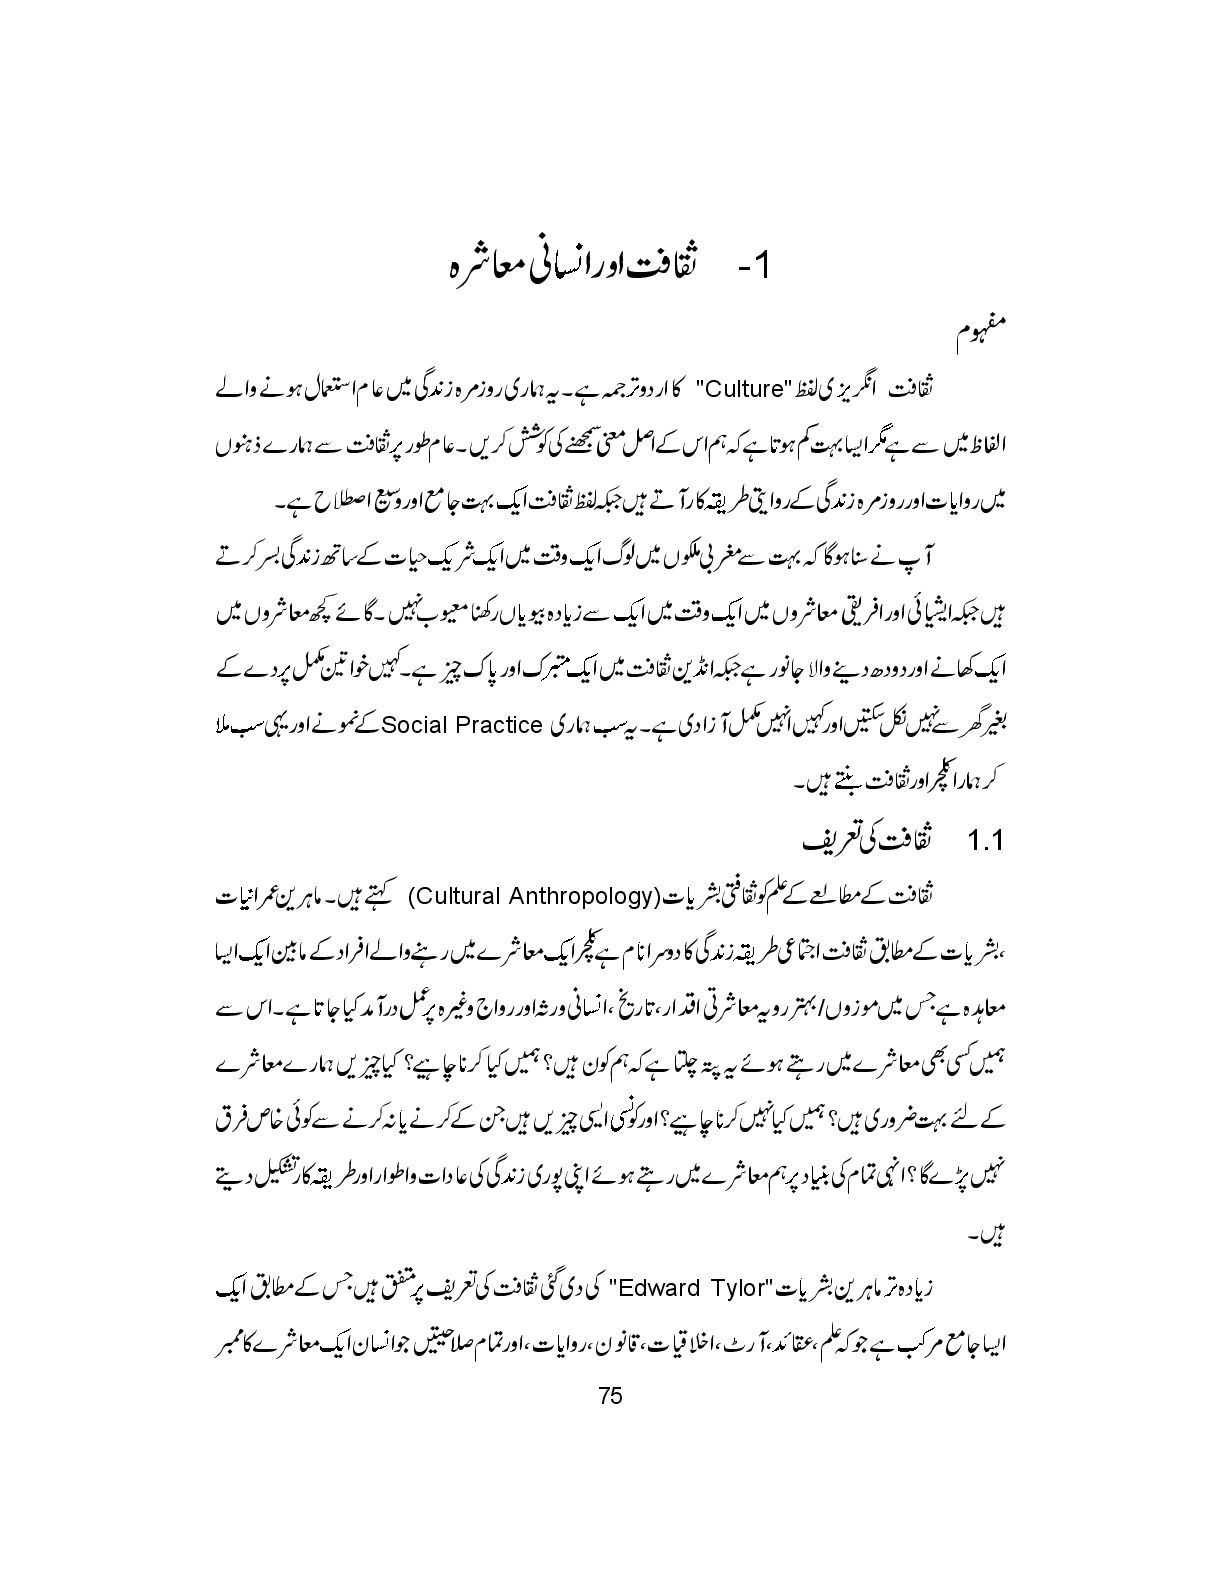 1- ثقافت اور انسانی معاشرہ
مفہوم
ثقافت انگریزی لفظ "Culture" کا اردو ترجمہ ہے۔ یہ ہماری روزمرہ زندگی میں عام استعمال ہونے والے
الفاظ میں سے ہے مگر ایسا بہت کم ہوتا ہے کہ ہم اس کے اصل معنی سمجھنے کی کوشش کریں۔ عام طور پر ثقافت سے ہمارے ذہنوں
میں روایات اور روزمرہ زندگی کے روایتی طریقہ کار آتے ہیں جبکہ لفظ ثقافت ایک بہت جامع اور وسیع اصطلاح ہے۔
آپ نے سنا ہوگا کہ بہت سے مغربی ملکوں میں لوگ ایک وقت میں ایک شریک حیات کے ساتھ زندگی بسر کرتے
ہیں جبکہ ایشیائی اور افریقی معاشروں میں ایک وقت میں ایک سے زیادہ بیویاں رکھنا معیوب نہیں۔ گائے کچھ معاشروں میں
ایک کھانے اور دودھ دینے والا جانور ہے جبکہ انڈین ثقافت میں ایک متبرک اور پاک چیز ہے۔ کہیں خواتین مکمل پردے کے
بغیر گھر سے نہیں نکل سکتیں اور کہیں انہیں مکمل آزادی ہے۔ یہ سب ہماری Social Practice کے نمونے اور یہی سب ملا
کر ہمارا کلچر اور ثقافت بنتے ہیں۔
1.1 ثقافت کی تعریف
ثقافت کے مطالعے کے علم کو ثقافتی بشریات (Cultural Anthropology) کہتے ہیں۔ ماہرین عمرانیات
،بشریات کے مطابق ثقافت اجتماعی طریقہ زندگی کا دوسرا نام ہے کلچر ایک معاشرے میں رہنے والے افراد کے مابین ایک ایسا
معاہدہ ہے جس میں موزوں/بہتر رویہ معاشرتی اقدار، تاریخ، انسانی ورثہ اور رواج وغیرہ پر عمل درآمد کیا جاتا ہے۔ اس سے
ہمیں کسی بھی معاشرے میں رہتے ہوئے یہ پتہ چلتا ہے کہ ہم کون ہیں؟ ہمیں کیا کرنا چاہیے؟ کیا چیزیں ہمارے معاشرے
کے لئے بہت ضروری ہیں؟ ہمیں کیا نہیں کرنا چاہیے؟ اور کونسی ایسی چیزیں ہیں جن کے کرنے یا نہ کرنے سے کوئی خاص فرق
نہیں پڑے گا؟ انہی تمام کی بنیاد پر ہم معاشرے میں رہتے ہوئے اپنی پوری زندگی کی عادات و اطوار اور طریقہ کار تشکیل دیتے
ہیں۔
زیادہ تر ماہرین بشریات "Edward Tylor" کی دی گئی ثقافت کی تعریف پر متفق ہیں جس کے مطابق ایک
ایسا جامع مرکب ہے جو کہ علم، عقائد، آرٹ، اخلاقیات، قانون، روایات، اور تمام صلاحیتیں جو انسان ایک معاشرے کا ممبر
75